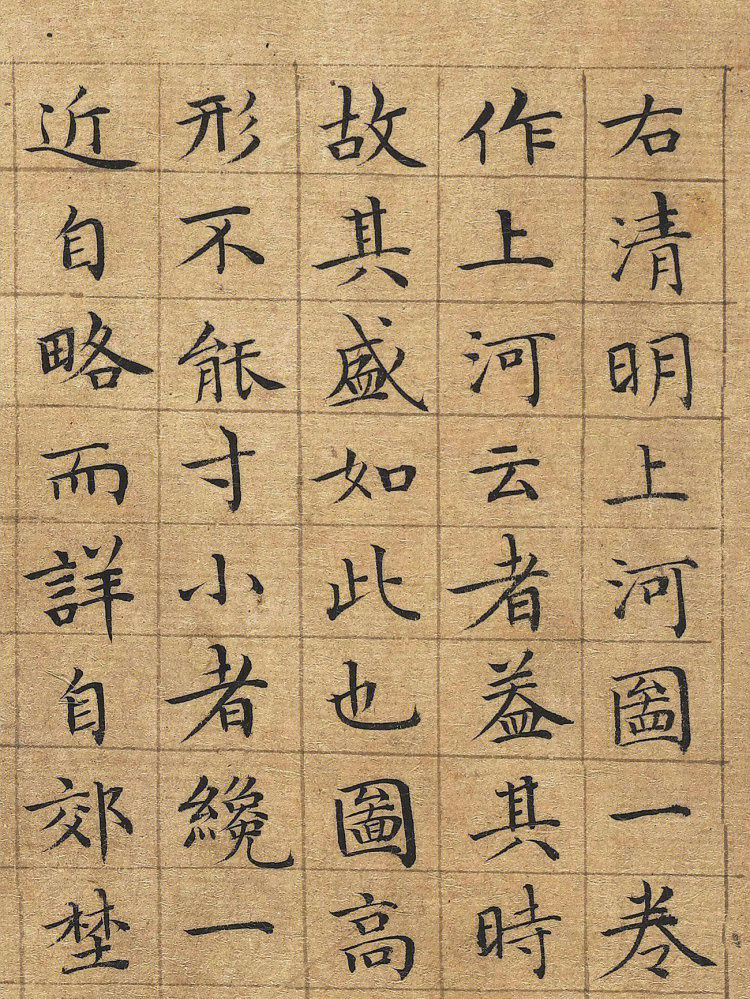 右清明上河圖一卷
作上河云者蓋其時
故其盛如此也圖高
形不能寸小者纔一
近自略而詳自郊埜